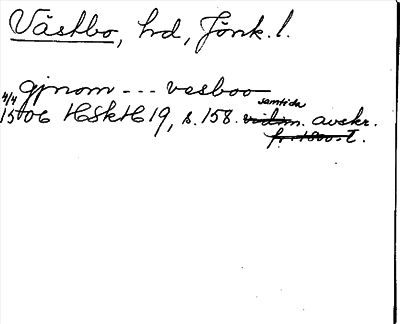 Västbo, hd, Jönk. l.
gjnom --- vesboo
4/4 1506 HSkH 19, s. 158. vidim. samtida avskr.
fr. 1800-t.